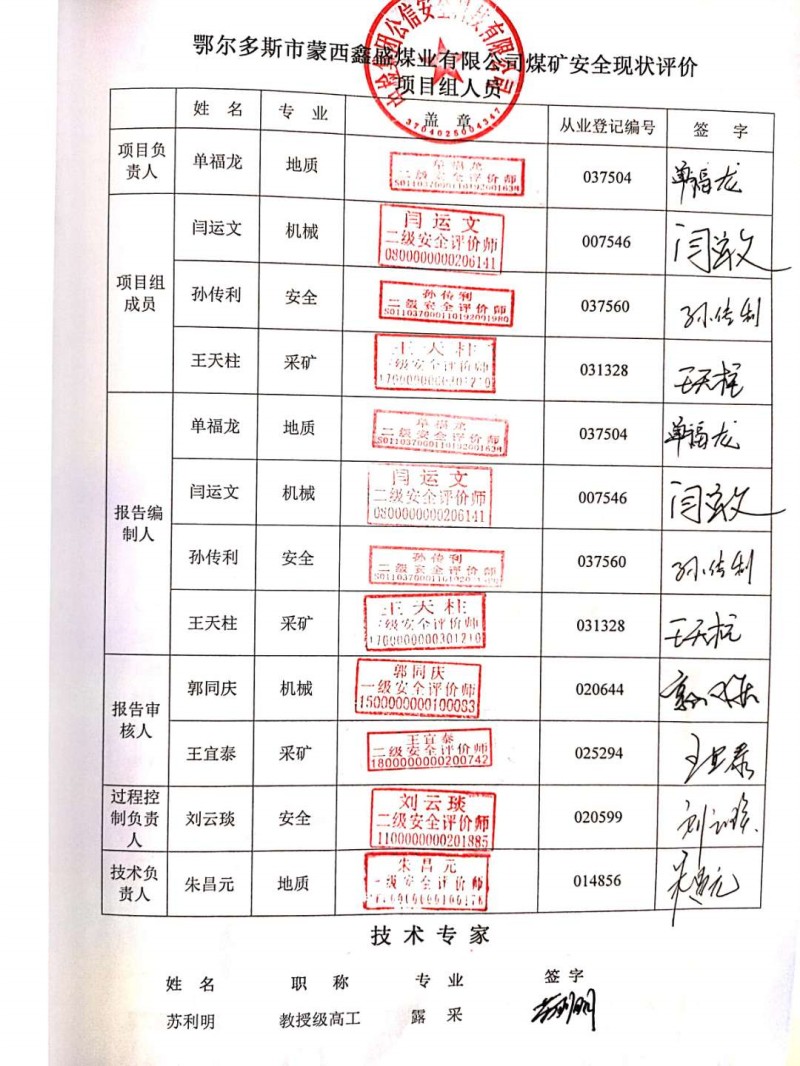 鄂尔多斯市蒙西鑫盛煤业有限公司煤矿安全现状评价
项目组人员
公信安全科技有限公司
3704025004347
姓 名 专 业 盖 章 从业登记编号 签 字
项目负责人 单福龙 地质 单福龙 二级安全评价师 S011037000110192001634 037504 单福龙
项目组成员
闫运文 机械 闫运文 二级安全评价师 0800000000206141 007546 闫运文
孙传利 安全 孙传利 二级安全评价师 S011037000110192001980 037560 孙传利
王天柱 采矿 王天柱 级安全评价师 031328 王天柱
报告编制人
单福龙 地质 单福龙 二级安全评价师 S011037000110192001634 037504 单福龙
闫运文 机械 闫运文 二级安全评价师 0800000000206141 007546 闫运文
孙传利 安全 孙传利 二级安全评价师 037560 孙传利
王天柱 采矿 王天柱 级安全评价师 031328 王天柱
报告审核人
郭同庆 机械 郭同庆 一级安全评价师 1500000000100083 020644
王宜泰 采矿 王宜泰 二级安全评价师 1800000000200742 025294 王宜泰
过程控制负责人 刘云琰 安全 刘云琰 二级安全评价师 1100000000201885 020599 刘云琰
技术负责人 朱昌元 地质 朱昌元 一级安全评价师 014856 朱昌元
技 术 专 家
姓 名 职 称 专 业 签 字
苏利明 教授级高工 露 采 苏利明